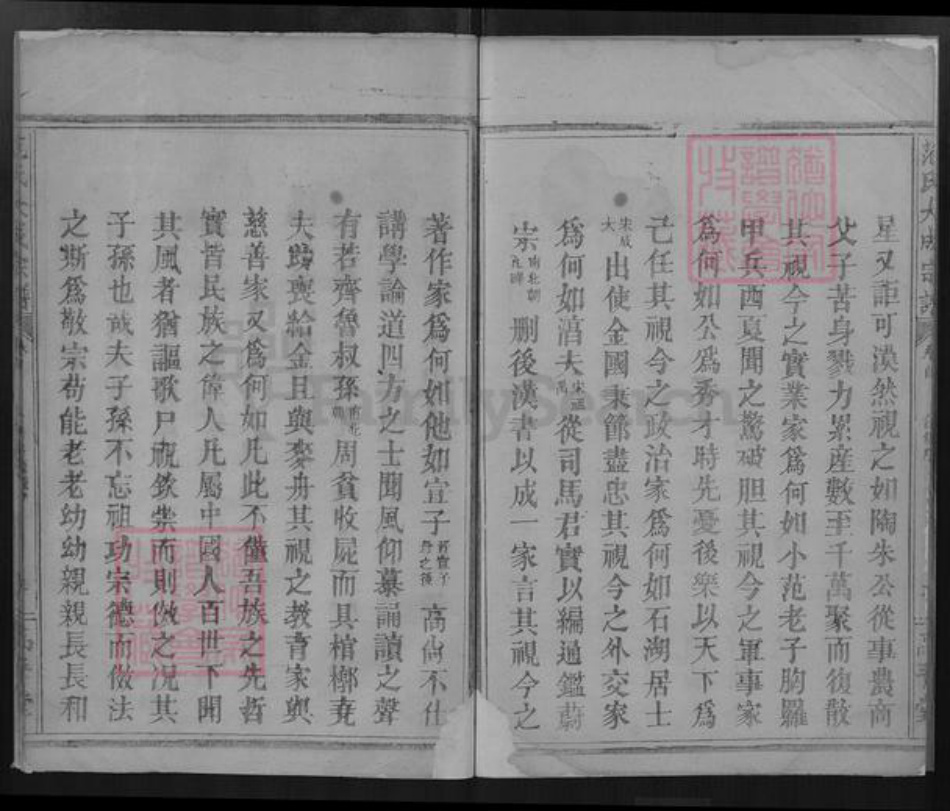 范氏大成宗譜
星又詎可漠然視之如陶朱公從事農商
父子苦身戮力累産數至千萬聚而復散
其視今之實業家爲何如小范老子胸羅
甲兵酉夏聞之驚破胆其視今之軍事家
爲何如公爲秀才時先憂後樂以天下爲
己任其視今之政治家爲何如石湖居士
宋成大出使金國秉節盡忠其視今之外交家
爲何如湻夫宋祖禹從司馬君實以編通鑑蔚
宗南北朝凡曄刪後漢書以成一家言其視今之
著作家爲何如他如宣子高尙不仕
講學論道四方之士聞風仰慕誦讀之聲
有若齊魯叔孫南北朝周貧收屍而具棺槨堯
夫賻喪給金且與麥舟其視之教育家與
慈善家又爲何如凡此不僅吾族之先哲
實皆民族之偉人凡屬中國人百世下聞
其風者猶謳歌尸祝欽崇而則傚之况其
子孫也哉夫子孫不忘祖功宗德而傚法
之斯爲敬宗苟能老老幼幼親親長長和
FamilySearch